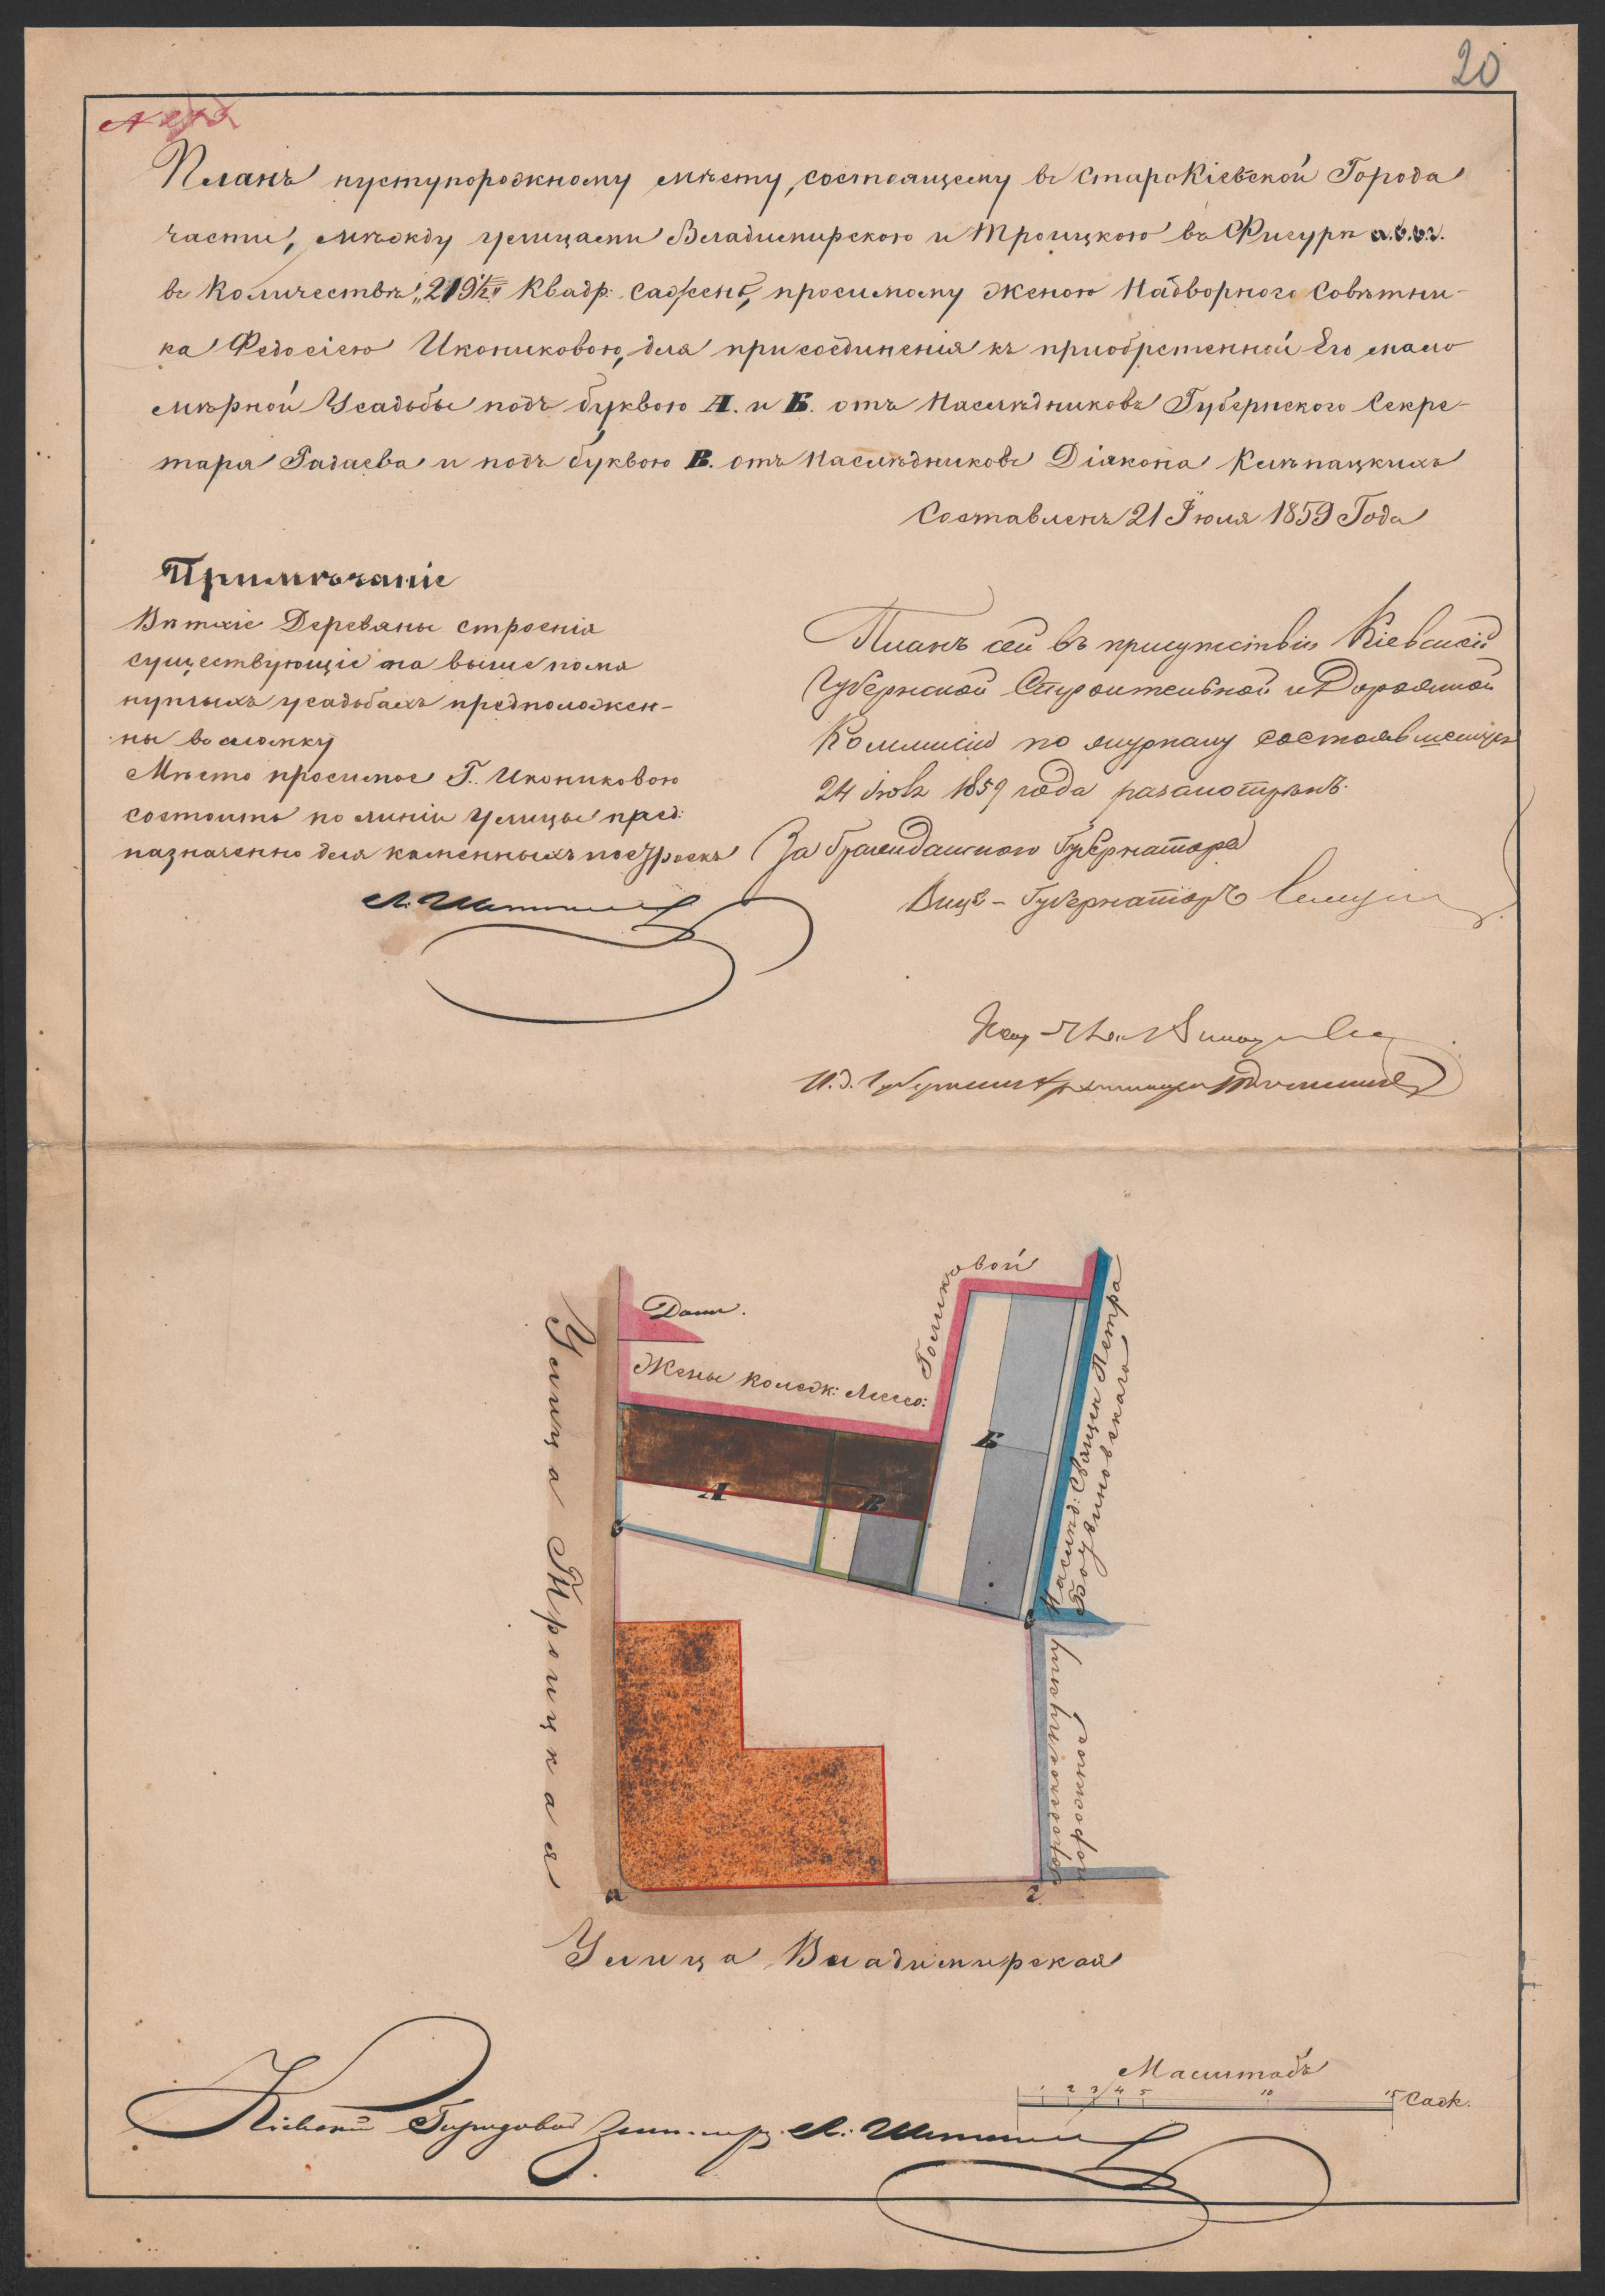 20
Планъ пуступорожнему мѣсту, состоящему въ СтароКіевской Города
части, между улицами Владимирскою и Троицкою въ Фигурѣ а.б.в.г.
въ Количествѣ „219½" Квадр: сажень, просимому Женою Надворного Совѣтни-
ка Федосіею Икониковою, для присоединенія къ приобретенной Его мало
мѣрной Усадьбы подъ буквою А. и Б. отъ Наслѣдниковъ Губернского Секре-
таря Гадаева и подъ буквою В. отъ Наслѣдниковъ Діякона
Составленъ 21 Іюля 1859 Года
Примѣчаніе
Вѣтхіе Деревяны строенія
существующіе на выше помя
нутыхъ усадьбахъ предположен-
ны въ сломку
Мѣсто просимое Г. Икониковою
состоитъ по линіи Улицы пред:
назначенно для каменныхъ построекъ
Планъ сей въ присутствіи Кіевской
Губернской Строительной и Дорожной
Коммисіи по журналу состоявшемуся
24 Іюля 1859 года разсмотрѣнъ.
За Гражданскаго Губернатора
Вице-Губернаторъ
И.д. Губернск. Архитектора
Дани.
Жены Колеж: Ассес:
Голиковой
А
В
Б
Наслѣд: Священ Петра
Улица Троицкая
б
в
а
г
Улица Владимирская
Масштабъ
1 2 3 4 5 10 15 Саж.
Кіевскій Городовой